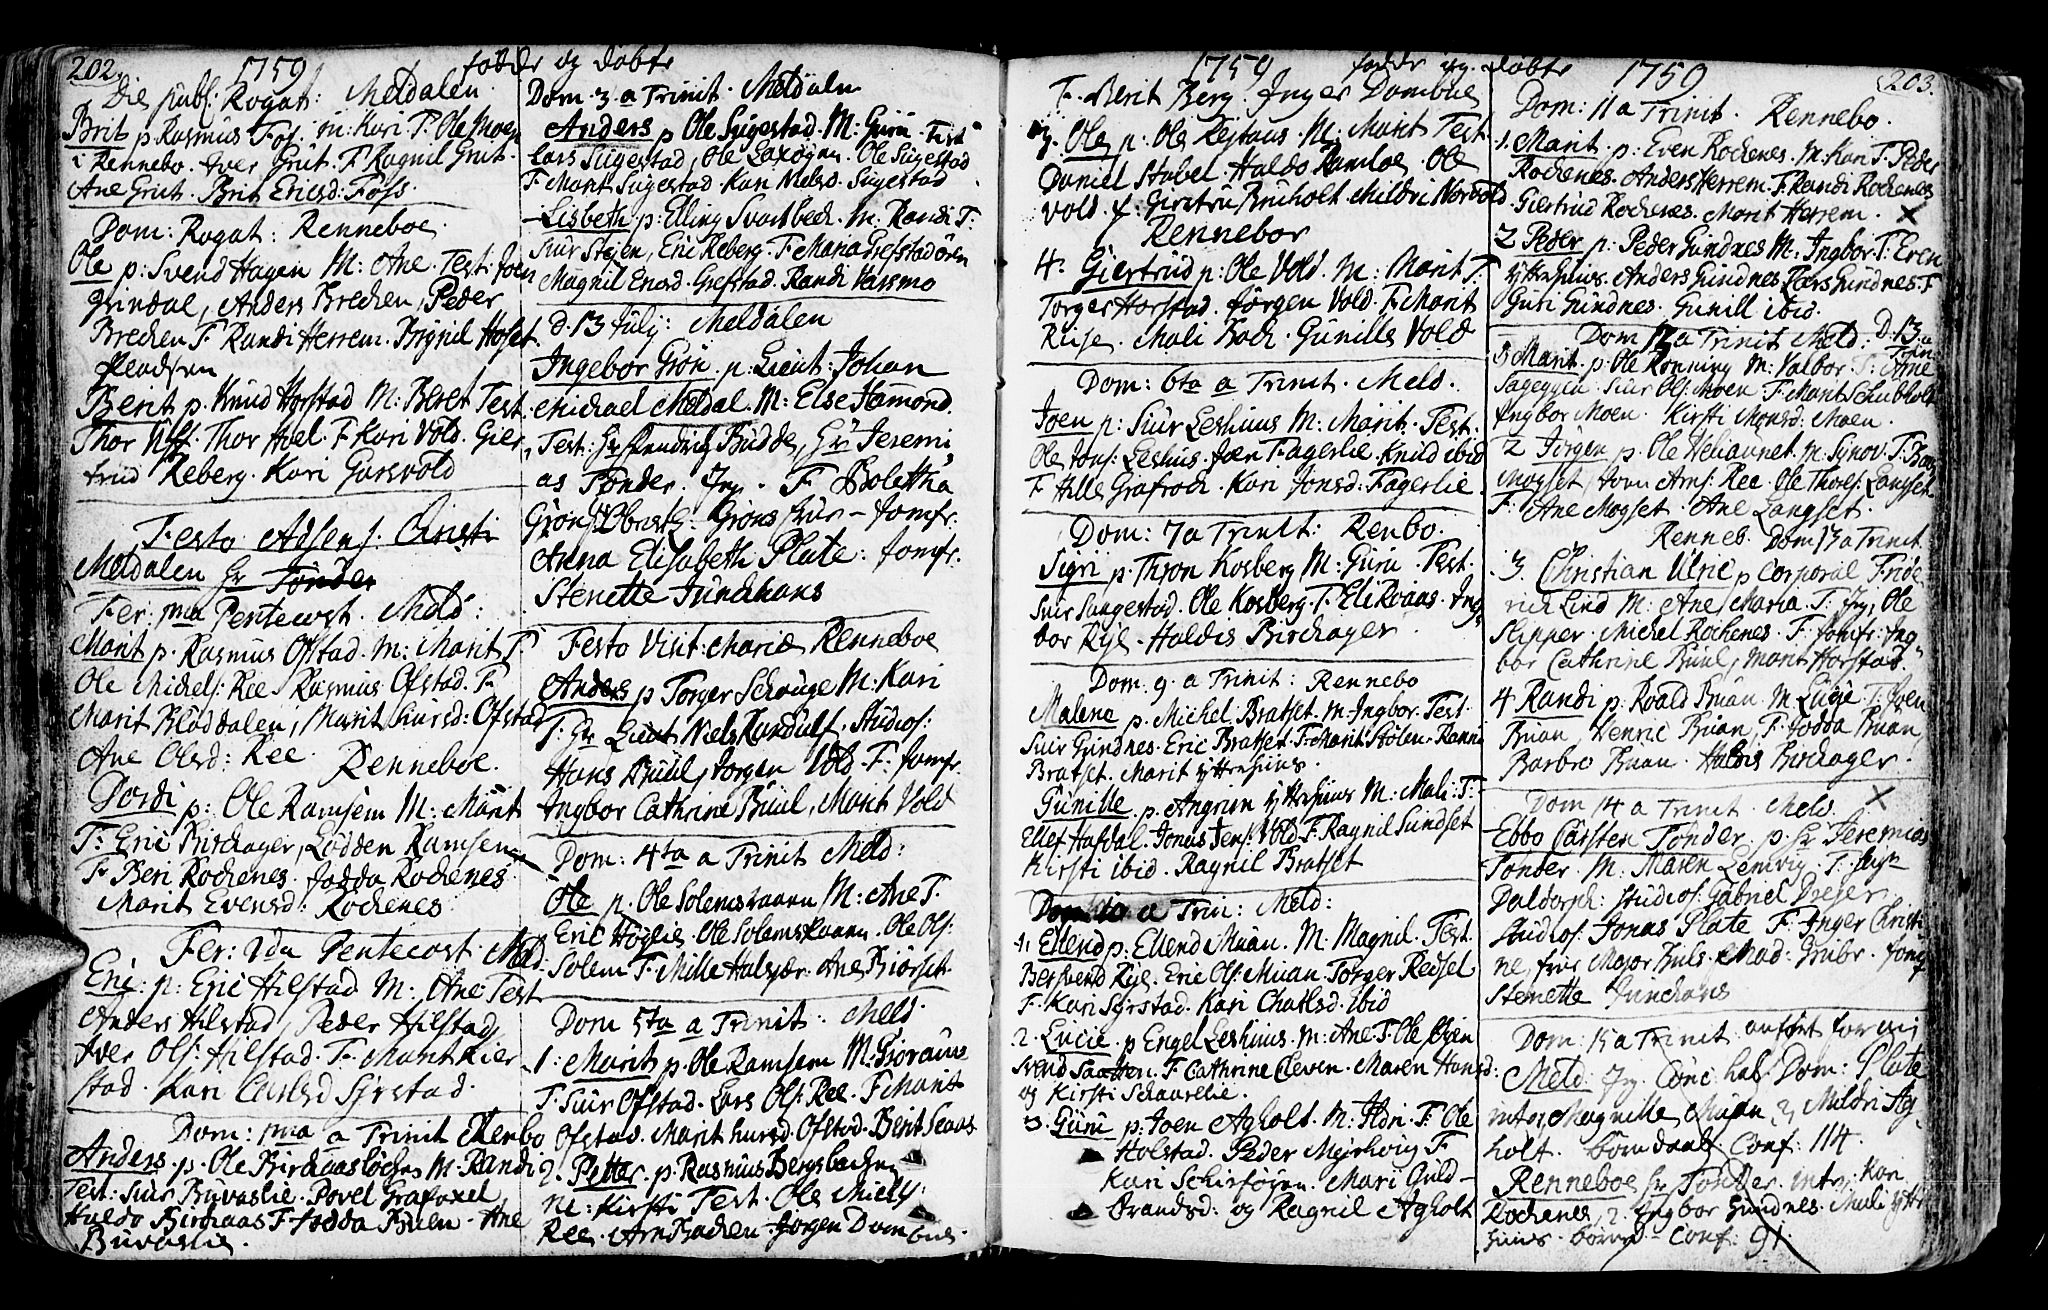 202. 1759 fødde og døbte
Die publ: Rogat: Meldalen
Brit p. Rasmus Fos. m: Kari T. Ole Moen
i Rennebo. Iver Grut. F. Ragnil Grut.
Ane Grut. Brit Ericsd: Foss.
Dom: Rogat: Renneboe.
Ole p: Svend Hagen M: Ane. Test: Joen
Grindal, Anders Brechen, Peder
Brechen F. Randi Herrem. Hoset
Berit p. Knud Horstad M: Beret Test.
Thor Ulff. Thor Hoel. F. Kari Vold. Gier
trud Reberg. Kari Gursvold
Festo Adsens. Christi
Meldalen Hr Tønder
Fer: 1ma Pentecost. Meld:
Marit p. Rasmus Ofstad. M: Marit T.
Ole Michels: Ree, Rasmus Ofstad. F.
Marit Bladdalen, Marit Siursd: Ofstad
Ane Olesd: Ree
Renneboe.
Dordi p: Ole Ramsem M: Marit
T: Eric Birchager, Lødden Ramsem
F. Beri Rochenes. Jodda Rochenes
Marit Evensd: Rochenes
Fer: 2da Pentecost. Meld:
Eric: p: Eric Hilstad M: Ane: Test
Anders Hilstad, Peder Hilstad
Iver Ols: Hilstad. F. Marit Kier
stad. Kari Carlsd Syrstad.
Dom: 1ma a Trinit Renbo
Anders. p. Ole Birchaasløchen M. Randi
Test: Siur Buvaslie. Povel Grafaxel
Haldo Birchaas F. Jodda Buen. Ane
Buvaslie.
Dom. 3 a Trinit. Meldalen
Anders p Ole Sugestad. M: Guru. Test
Lars Sugestad, Ole Laxøyen. Ole Sugestad
F. Marit Sugestad. Kari Nielsd. Sugestad
Lisbeth p. Elling Svartbech. M. Randi T.
Siur Stejen, Eric Reberg. F. Maria Grefstadøren
Magnil Ericsd. Grefstad. Randi Vassmo
d. 13 July: Meldalen
Ingebor Grøn p: Lieut: Johan
Michael Meldal. M: Else Hamond.
Test: Hr Hendrich Budde, Hr Jeremi
as Tønder. Jeg. F Boletha
Grøn, Obrestl: Grøns frue - Jomfr.
Anna Elisabeth Plate: Jomfr.
Stenette Junchhans
Festo Visit: Mariæ Renneboe
Anders p Torger Schouge M. Kari
T. Hr Lieut Niels Randulf, Studios:
Hans Buul, Jørgen Vold. F. Jomfr.
Ingbor Cathrine Buul, Marit Vold
Dom: 4ta a Trinit Meld:
Ole p. Ole Solemsvaann M: Ane T.
Eric Høglie. Ole Solemsvaann. Ole Ols:
Solem F. Mille Halsjær. Ane Biørset.
Dom 5ta a Trinit: Meld.
1: Marit p. Ole Ramsem M: Giøraune
T. Siur Ofstad. Lars Ols: Ree. F. Marit
Ofstad. Marit Siursd. Ofstad. Berit Scaas
2. Petter p. Rasmus Bergsbachen
M: Kirsti Test. Ole Niels:
Ree. Arn Bachen. Jørgen Dombue.
1759 fødde og døbte 1759 203.
F. Berit Berg. Inger Dombue
3. Ole p: Ole Restaus. M: Marit Test
Daniel Stabel. Haldo Ramloe. Ole
Vold. F. Giertru Bruholt. Mildri Norvold
Rennebor
4. Giertrud p: Ole Vold. M: Marit T.
Torger Horstad. Jørgen Vold. F. Marit
Ruse. Mali Bach. Gunille Vold
Dom: 6ta a Trinit. Meld.
Joen p: Siur Leshuus M: Marit. Test.
Ole Jons: Leshus. Joen Fagerlie. Knud ibid
F. Hille Grafroch. Kari Jonsd: Fagerlie.
Dom: 7 a Trinit: Renbo.
Sigri p. Thron Kosberg M: Guru. Test.
Siur Sungestad. Ole Kosberg. F. Eli Rvaas. Ing
bor Rye. Haldis Birchager.
Dom. 9. a Trinit: Rennebo
Malene p. Michel Bratset. M. Ingbor. Test.
Siur Gundnes. Eric Bratset. F. Marit Stølen. Ranni
Bratset. Marit Ytterhuus.
Gunille p. Angrim Ytterhuus M: Mali: T.
Ellef Hafdal. Jonas Jens: Vold. F. Ragnil Sundset
Kirsti ibid. Ragnil Bratset
Dom. 10 a Trin: Meld:
1. Ellend p: Ellend Muan. M. Magnil. Test.
Bersvend Rye. Eric Ols: Muan. Torger Redsel
F. Kari Syrstad. Kari Charlsd. ibid
2. Lucie. p Engel Leshuus. M: Ane T. Ole Evien
Svend Saatten. F. Cathrine Cleven. Maren Hansd:
og Kirsti Schaurelie.
3. Guru p: Joen Agholt. M: Ildri. T. Ole
Holstad. Peder Mejrhovig F.
Kari Schirføren. Mari Guld-
brandsd: og Ragnil Agholt
Dom: 11 a Trinit. Rennebo.
1. Marit. p: Even Rochenes. M: Kari T. Peder
Rochenes. Anders Herrem. F. Randi Rochenes
Giertrud Rochenes. Marit Herrem.
2 Peder p: Peder Gundnes M: Ingbor: T. Even
Ytterhuus. Anders Gundnes. Lars Gundnes. F
Guri Gundnes. Gunill ibid.
Dom 12 a Trinit Meld: D. 13 a
Trin.
1 Marit. p. Ole Rønning M: Valbor. T: Arne
Sageggen. Siur Ols: Moen F. Marit Schubholt
Ingbor Moen. Kirsti Monsd: Moen.
2 Jørgen p. Ole Heliaunet. M: Synov. T. Baar
Mogset, Joen Arns: Ree. Ole Thores. Langset
F. Ane Mogset. Ane Langset.
Renneb. Dom 13 a Trinit
3. Christian Ulric p Corporal Fride
rich Lind M: Ane Maria. T: Jeg, Ole
Slipper. Michel Rochenes. F. Jomfr: Ing
bor Cathrine Buul, Marit Horstad.
4 Randi p: Roald Buan M. Lucie. T. Joen
Buan, Henric Buan, F. Jodda Buan,
Barbro Buan. Haldis Birchager.
Dom 14 a Trinit. Meld.
Ebbo Carsten Tønder p. Hr Jeremias
Tønder. M. Maren Lemvig. T. Jeg
Daldorph: Studios: Gabriel Dreyer
Studios: Jonas Plate F. Inger Christi
ne, frue Major Huls. Mad: Grubr. Jomf:
Stenette Junchans
Dom: 15 a Trinit anført for mig
Meld. Jeg. Conc: hab Dom: Plate
intr. Magnille Muan 2. Mildri Ag
holt. børn daab. Conf: 114.
Renneboe Hr Tønder. intr. Kari
Rochenes, 2. Ingbor Gundnes. Mali Ytter
huus. Conf: 91.